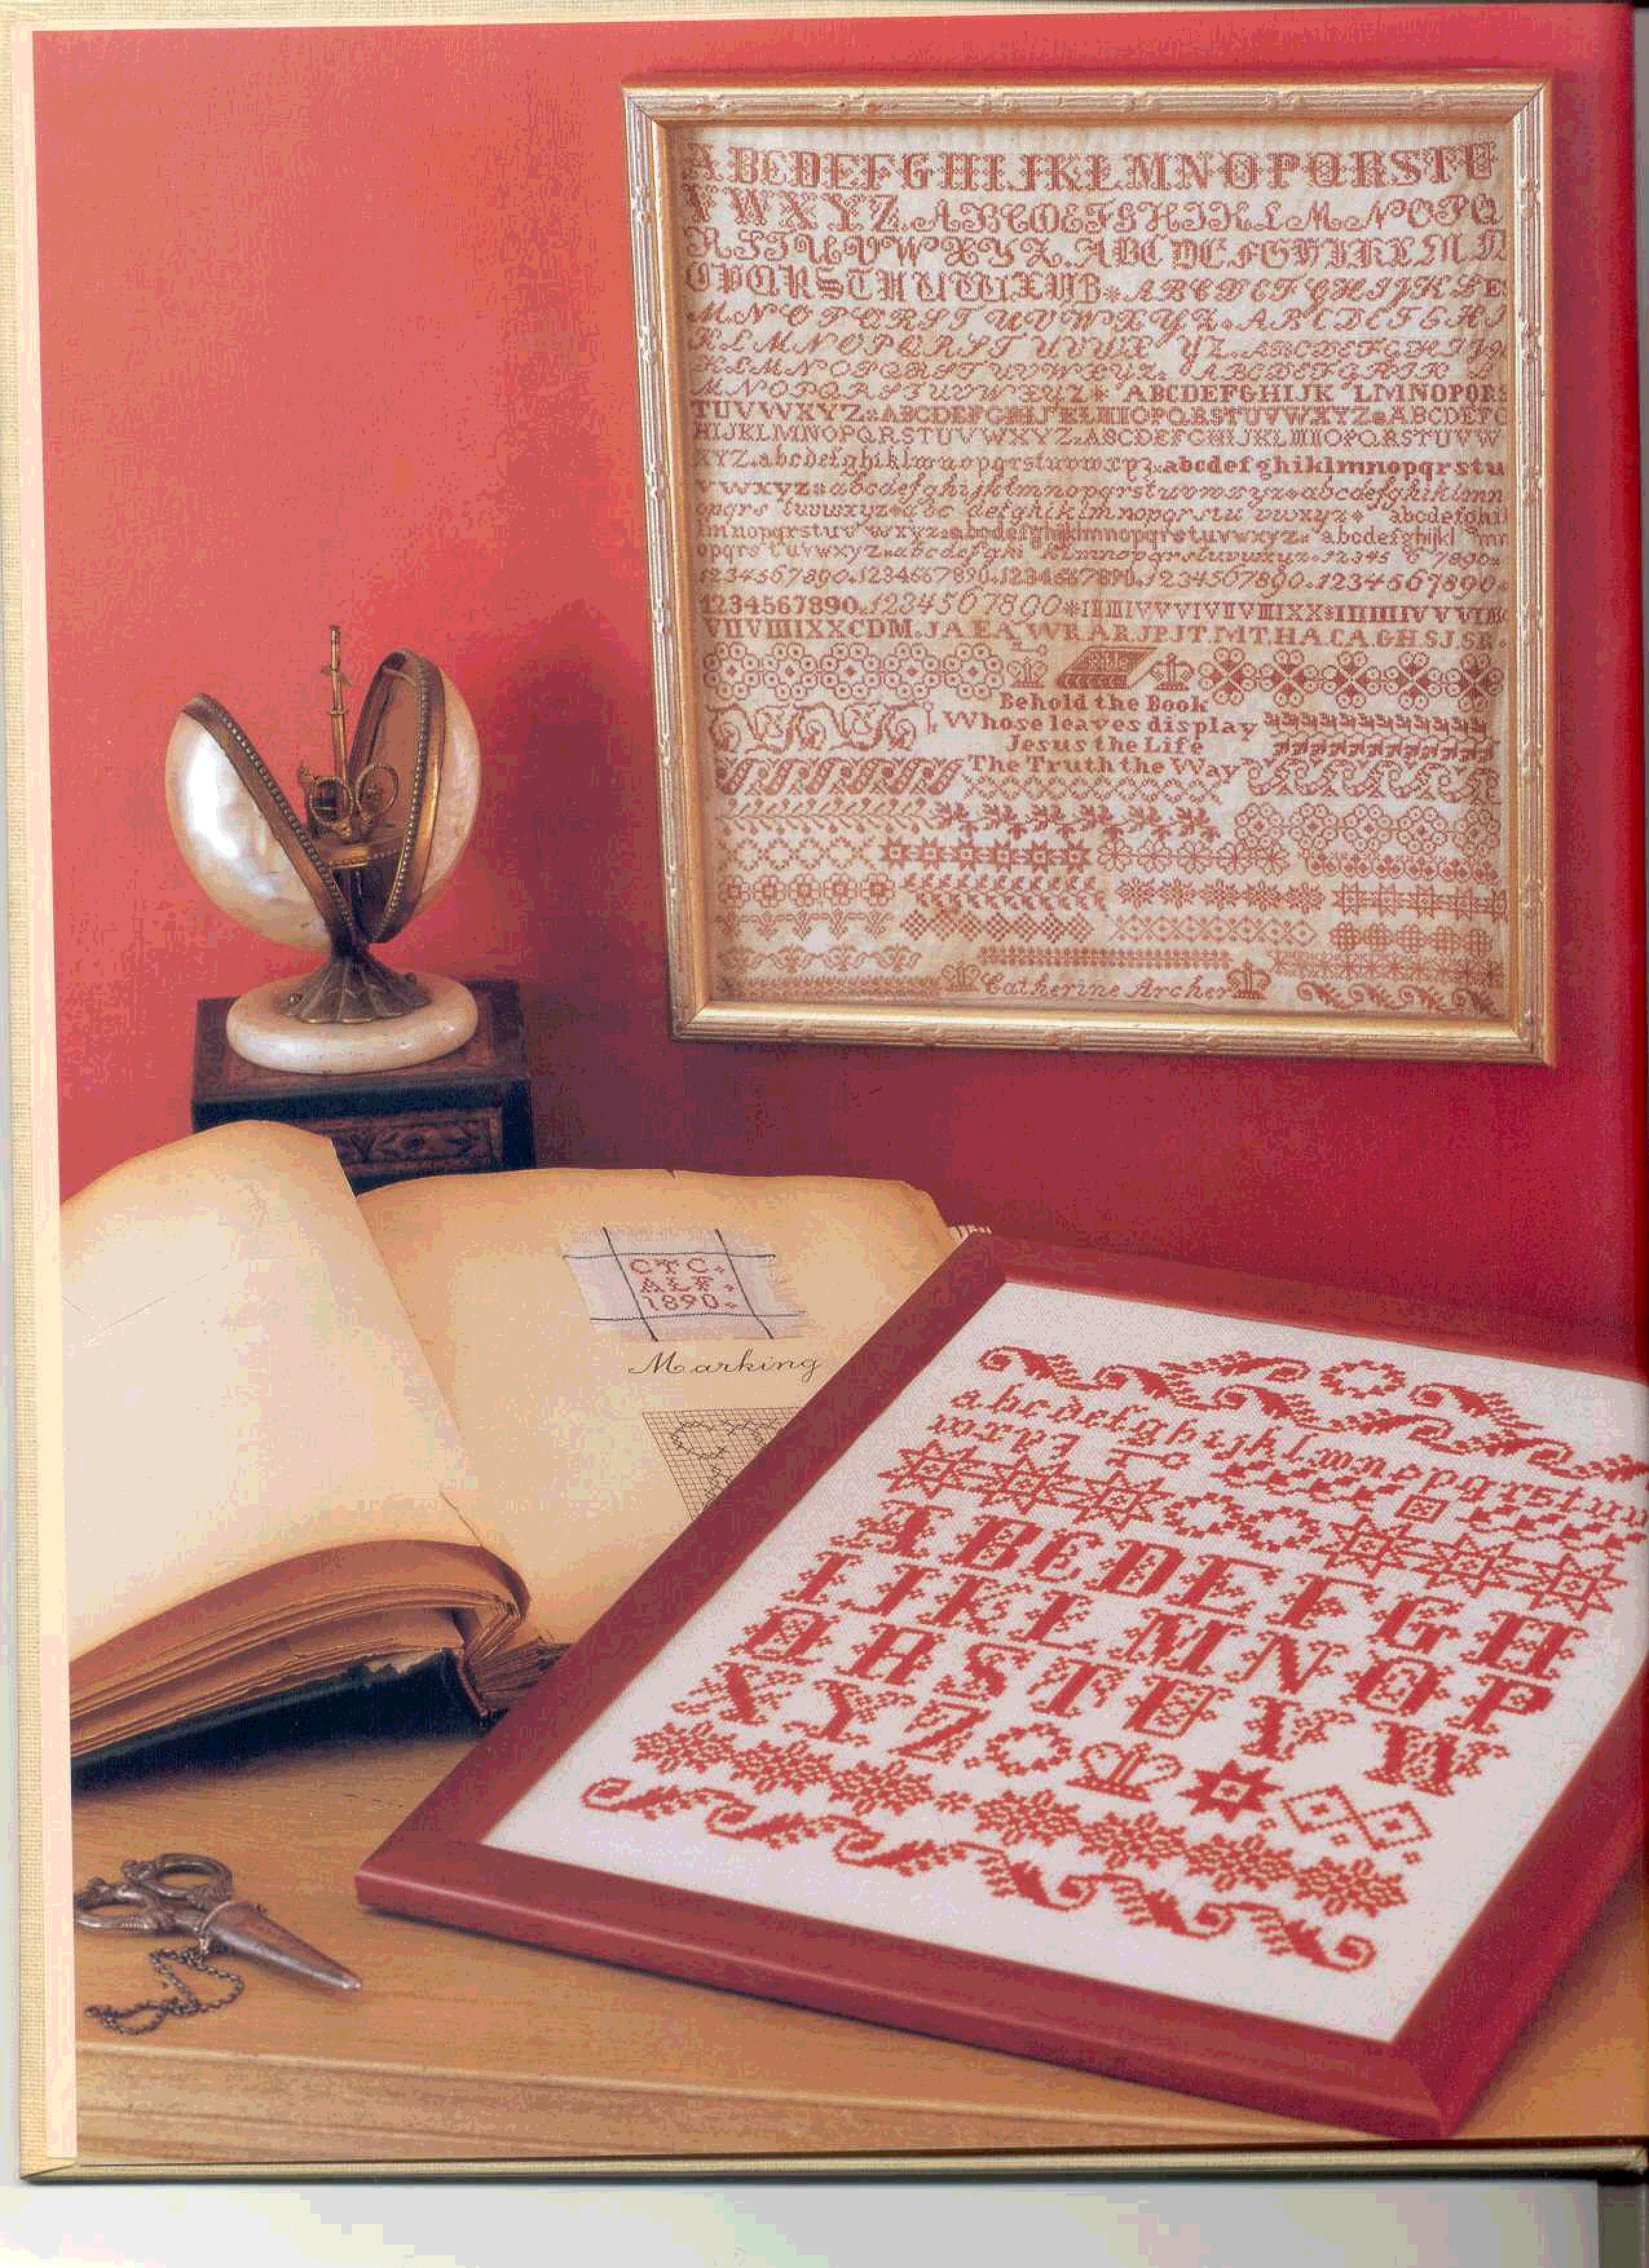 ABCDEFGHIJKLMNOPQRSTU
VWXYZ.ABCDEFGHIJKLMNOPQ
RSTUVWXYZ.ABCDEFGHIJKLMN
OPQRSTUVWXYZ*ABCDEFGHIJKL
MNOPQRSTUVWXYZ.ABCDEFGHI
KLMNOPQRSTUVWX YZ.ABCDEFGHIJ
KLMNOPQRSTUVWXYZ. ABCDEFGHIJK L
MNOPQRSTUVWXYZ* ABCDEFGHIJK LMNOPQRS
TUVWXYZ*ABCDEFGHIJKLMNOPQRSTUVWXYZ*ABCDEFG
HIJKLMNOPQRSTUVWXYZ.ABCDEFGHIJKLMNOPQRSTUVW
XYZ.abcdefghiklmnopqrstuvwxyz.abcdefghiklmnopqrstu
vwxyz*abcdefghijklmnopqrstuvwxyz*abcdefghiklmn
opqrs tuvwxyz*abc defghiklmnopqrstu vwxyz* abcdefghi
lmnopqrstuv wxyz*abcdefghijklmnopqrstuvwxyz* abcdefghijkl mn
opqrs tuvwxyz*abcdefghi klmnopqrstuvwxyz.12345 6 7890*
1234567890.1234567890.1234567890.1234567890.1234567890.
1234567890.1234567890*IIIIIIIVVVIVIIVIIIIXX*IIIIIIIVVVI
VIIVIIIIXXCDM.JA.EA.WR.AR.JP.JT.MT.HA.CA.GH.SJ.SR.
Behold the Book
Whose leaves display
Jesus the Life
The Truth the Way
Catherine Archer
CTC.
ALF.
1890.
Marking
abcdefghijklmnopqrstuv
wxyz
ABCDEFGH
IJKLMNOP
QRSTUVW
XYZ